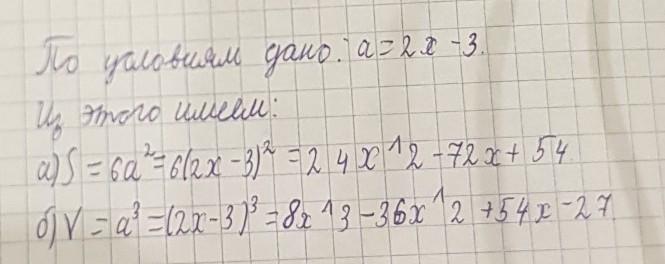 По условиям дано: a = 2x - 3.
Из этого имеем:
а) S = 6a² = 6(2x - 3)² = 24x^2 - 72x + 54
б) V = a³ = (2x - 3)³ = 8x^3 - 36x^2 + 54x - 27